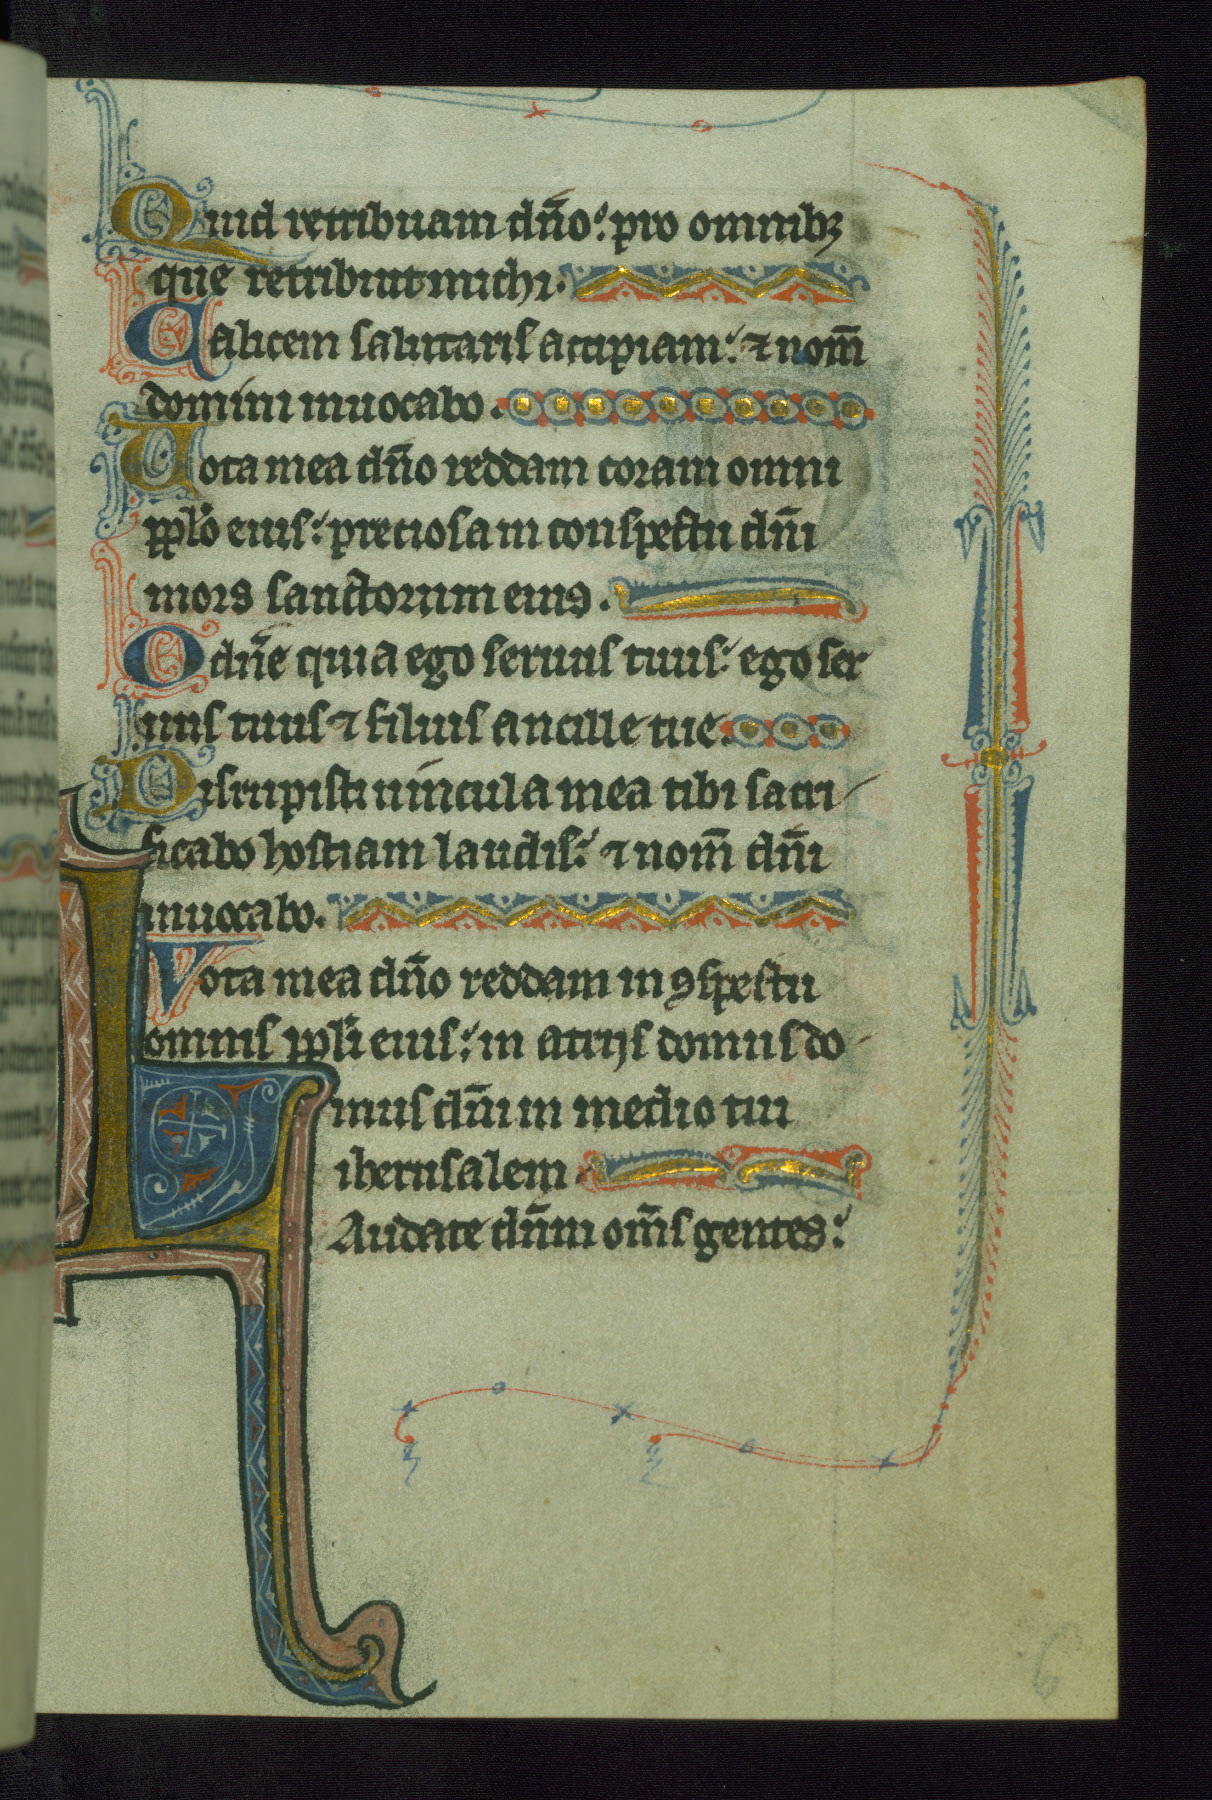 Quid retribuam dn̄o: pro omnibꝫ
que retribuit michi.
Calicem salutaris accipiam: ⁊ nom̄
domini inuocabo.
Uota mea dn̄o reddam coram omni
pp̄lo eius: preciosa in conspectu dn̄i
mors sanctorum eius.
O dn̄e quia ego seruus tuus: ego ser
uus tuus ⁊ filius ancille tue.
Disrupisti uincula mea tibi sacri
ficabo hostiam laudis: ⁊ nom̄ dn̄i
inuocabo.
Vota mea dn̄o reddam in ꝯspectu
omnis pp̄li eius: in atrijs domus do
mus dn̄i in medio tui
iherusalem.
Laudate dn̄m om̄s gentes:
6